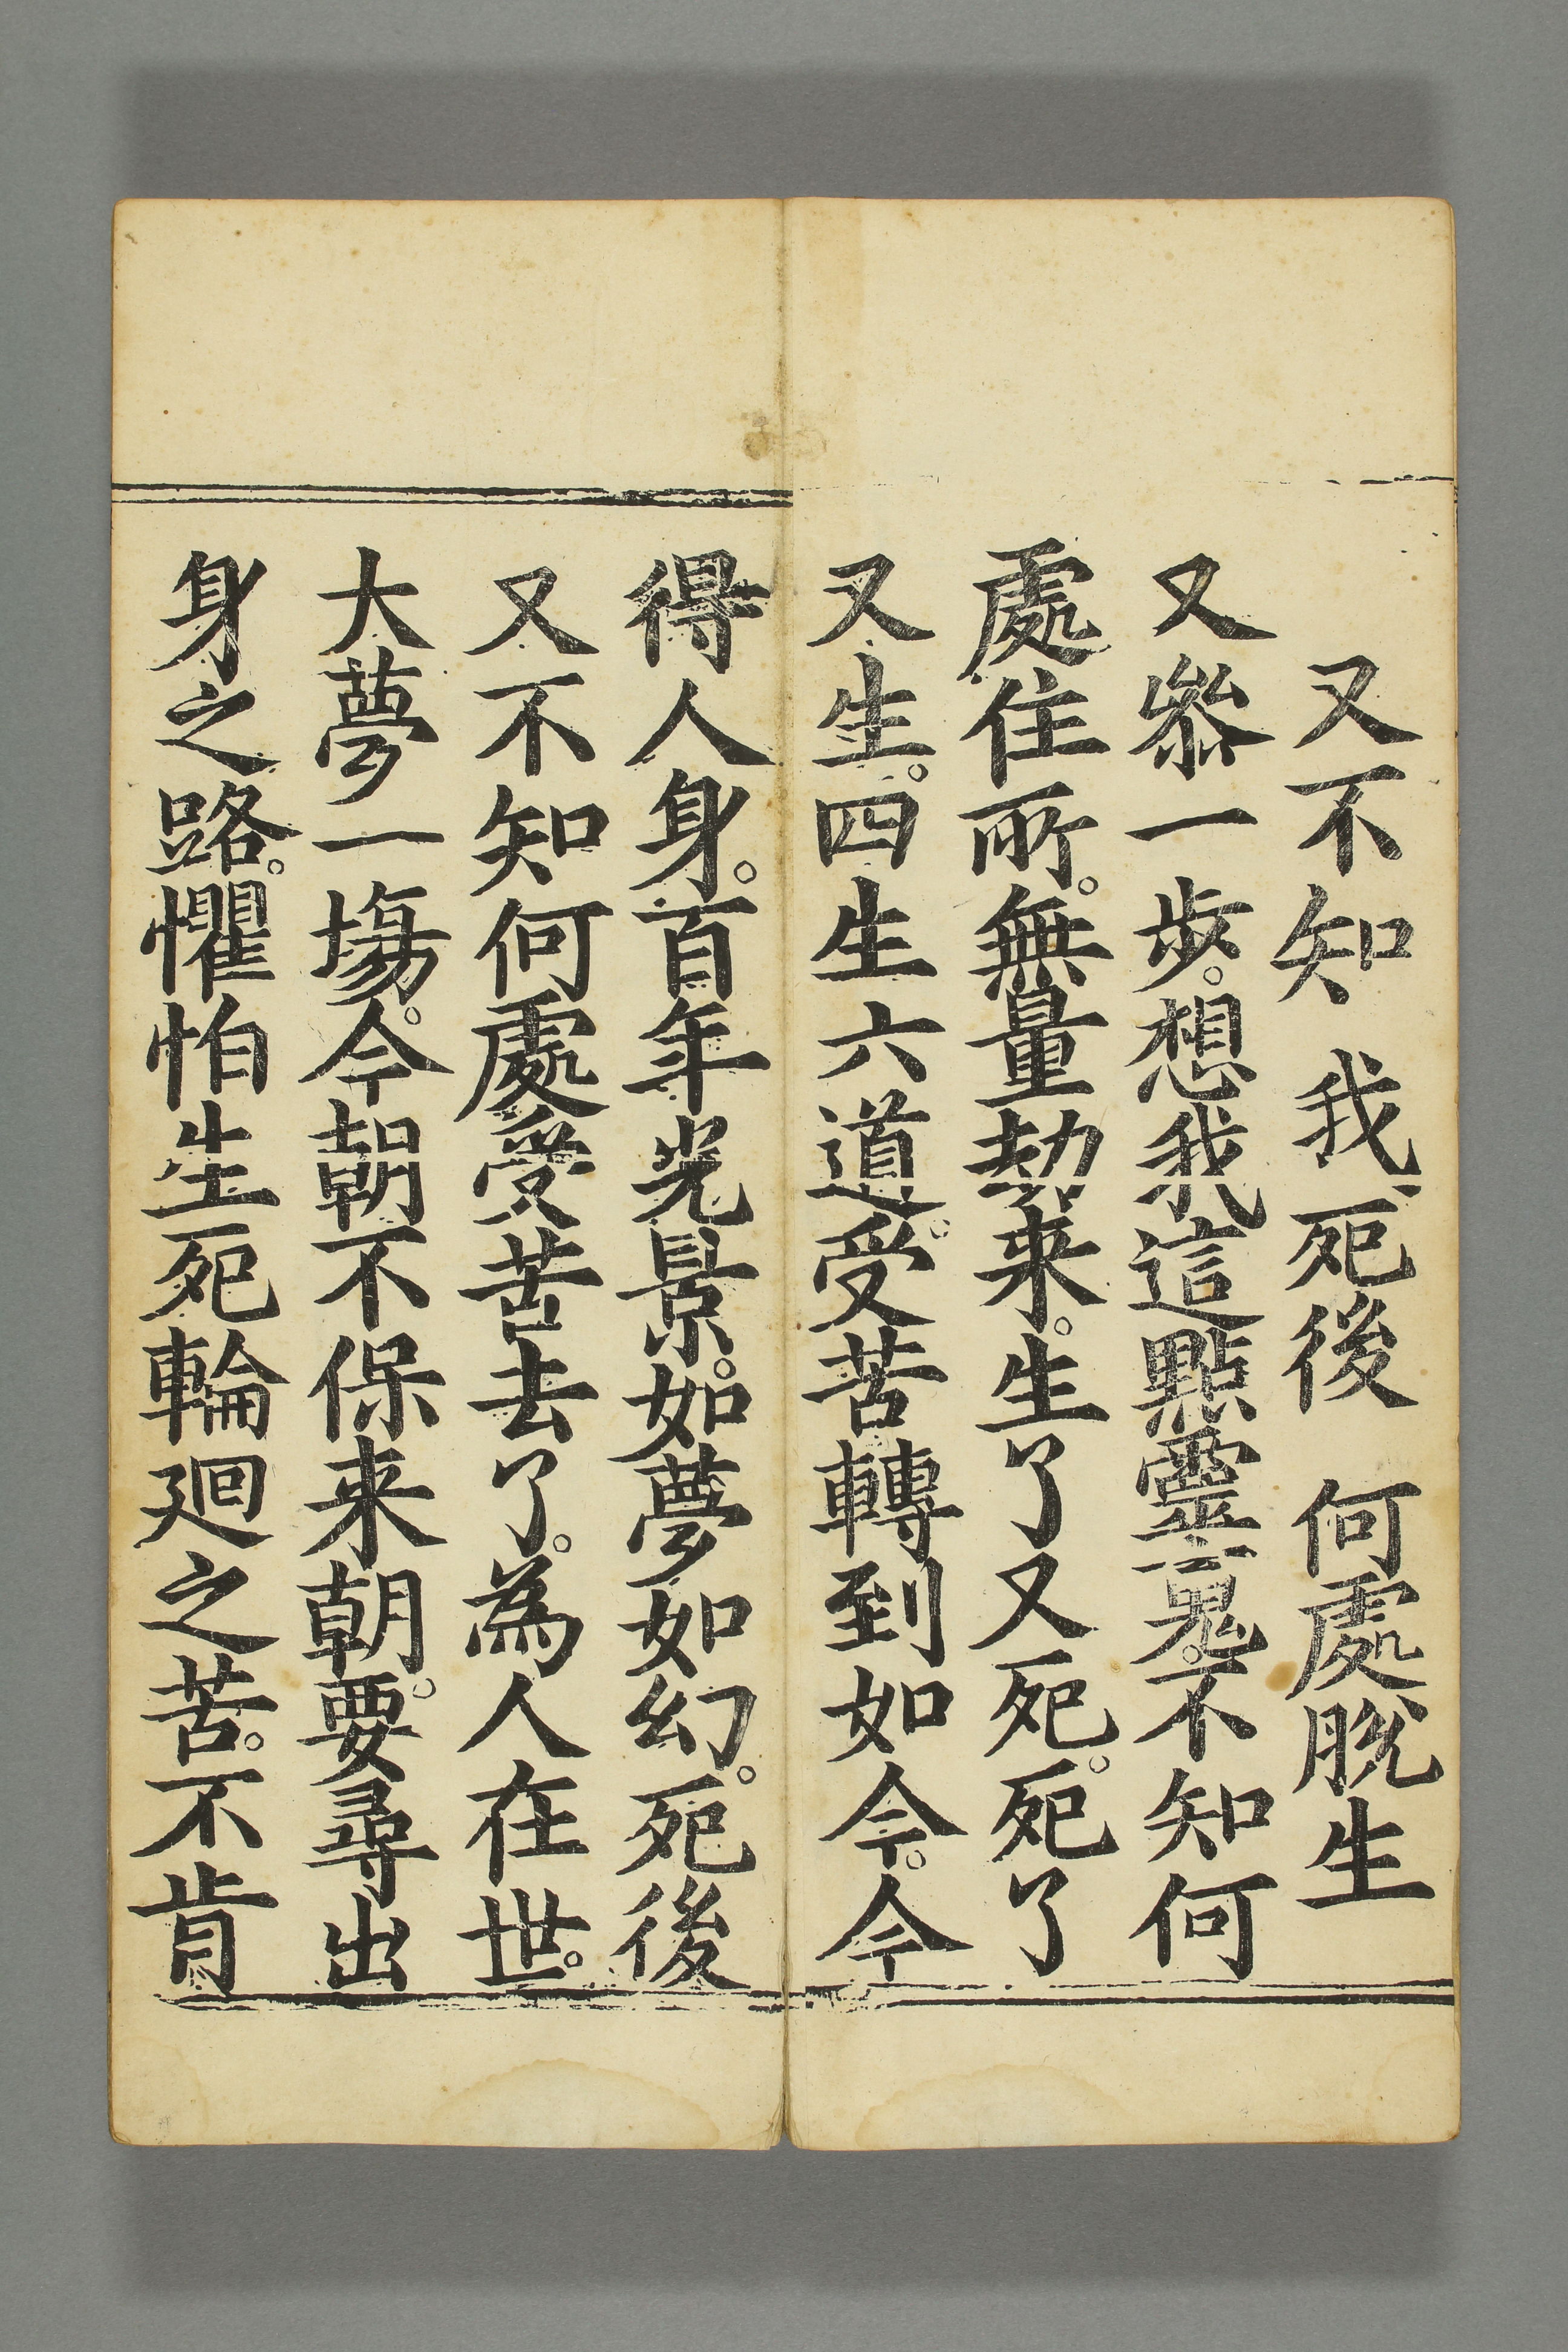 又不知 我死後 何處脱生
又叅一步。想我這點靈䰟。不知何
處住所。無量劫来。生了又死。死了
又生。四生六道。受苦轉到如今。今
得人身。百年光景。如夢如幻。死後
又不知何處受苦去了。為人在世。
大夢一塲。今朝不保来朝。要尋出
身之路。懼怕生死輪廻之苦。不肯